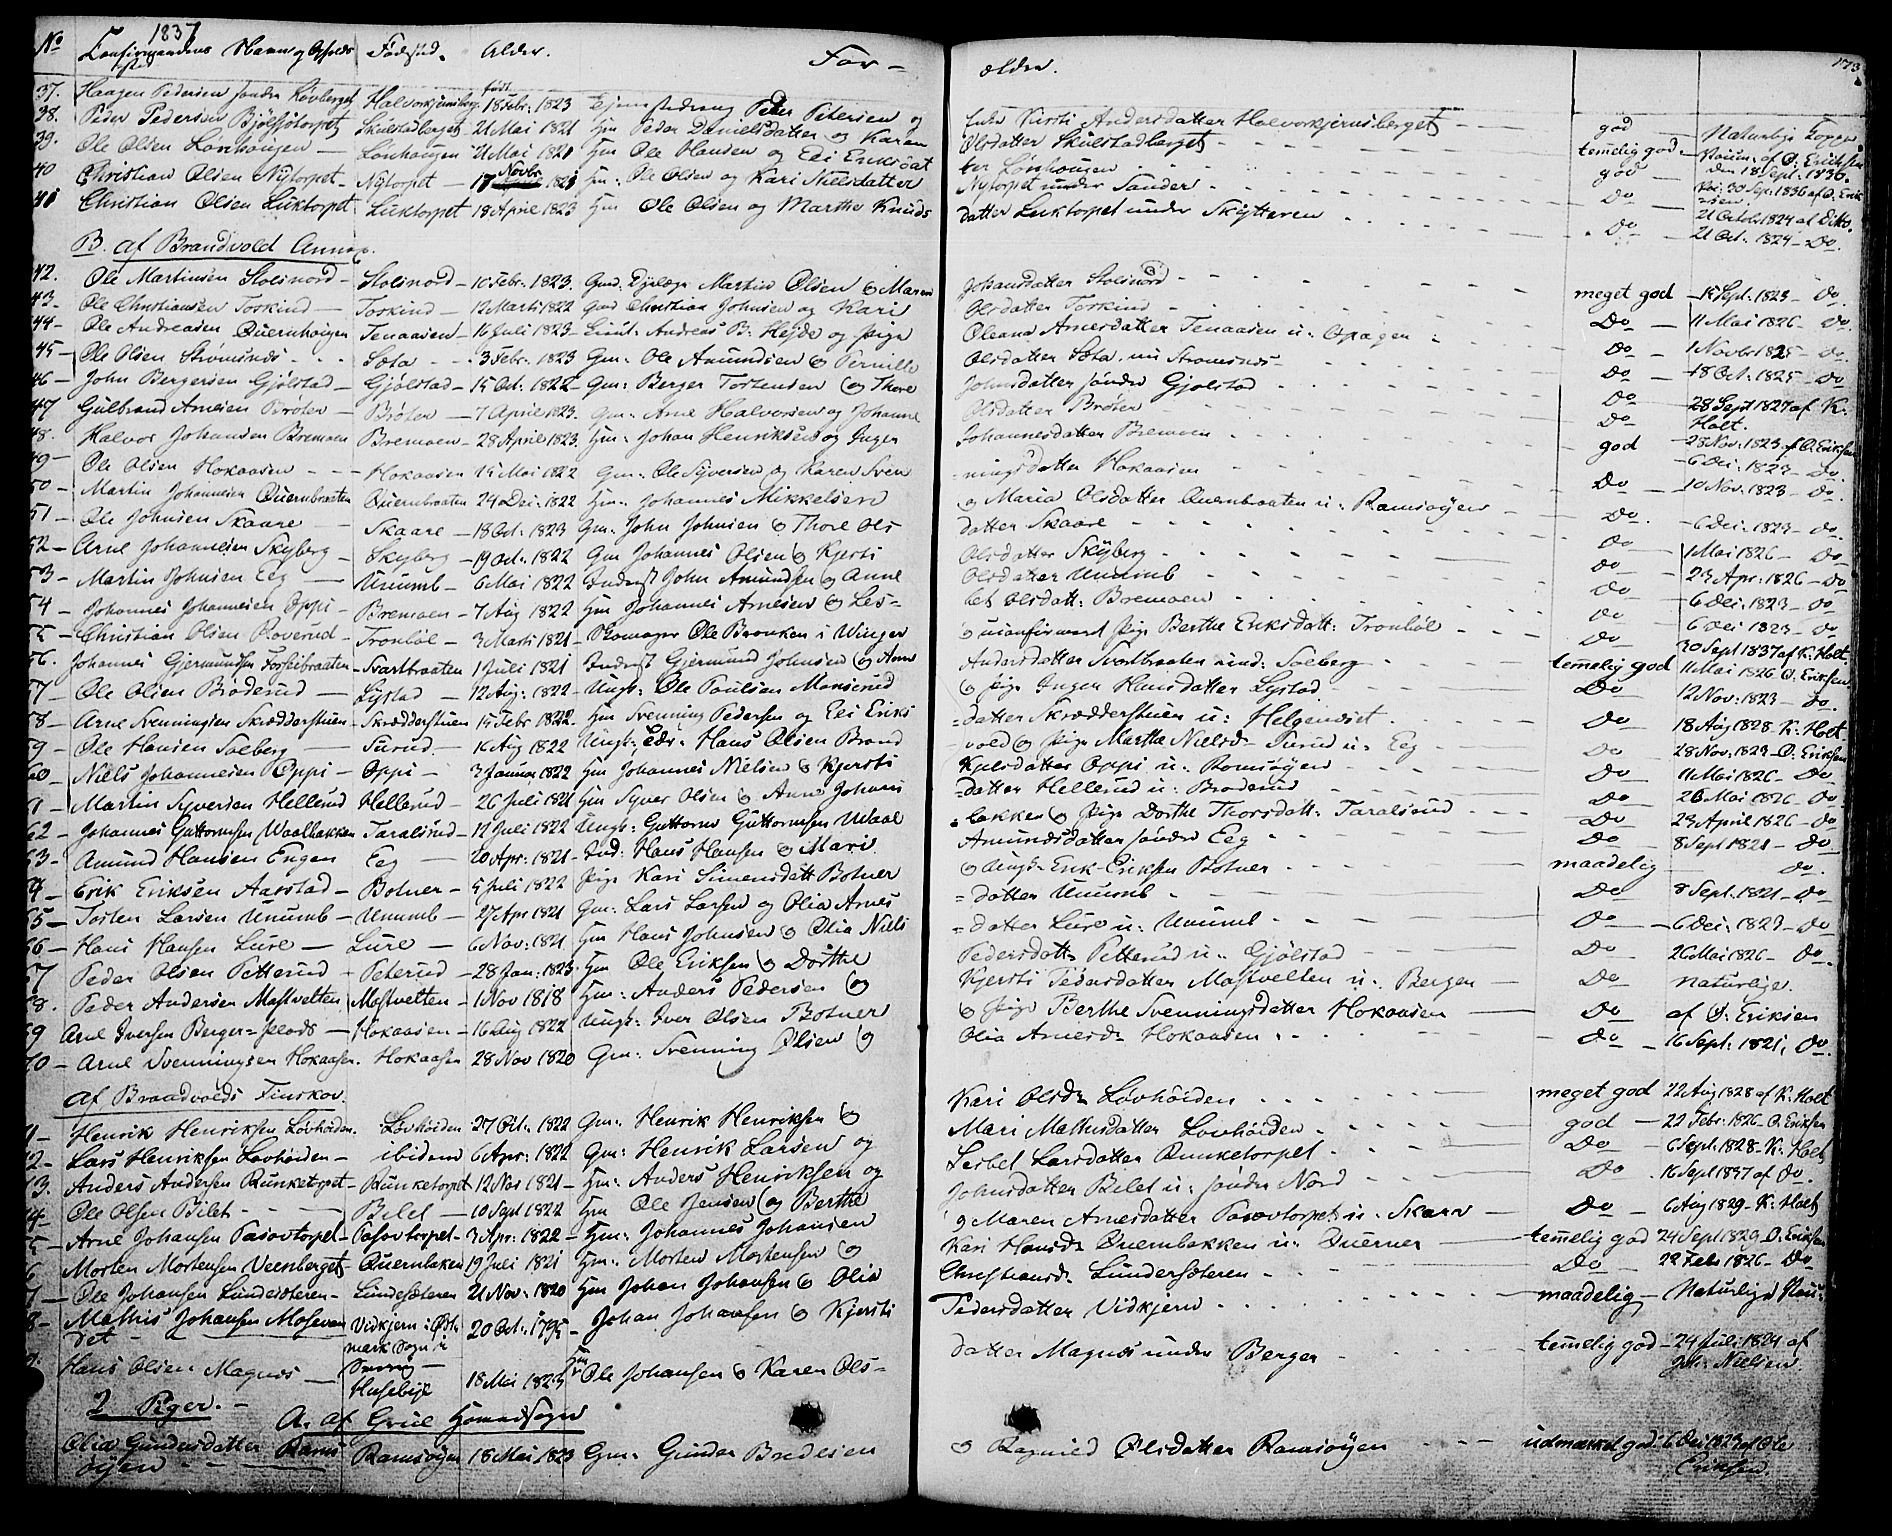 1837
No Confirmandens Navn og Opholds Fødested. Alder. For-
sted
37. Haagen Pedersen søndre Løvberget Halvorkjernsberg. født 18 Febr: 1823 Ejerm Peder Petersen og
38. Peder Pedersen Bjølsjøtorpet Skulstadberget 21 Mai 1821 Hm Peder Danielsdatter og Karen
39. Ole Olsen Lønhougen Lønhougen 21 Mai 1821 Hm Ole Hansen og Edi Eriksdat
40 Christian Olsen Nÿtorpet Nÿtorpet 17 Novbr 1821 Hm: Ole Olsen og Kari Nielsdatter
41 Christian Olsen Luktorpet Luktorpet 18 April 1823 Hm Ole Olsen og Marthe Knuds
B. af Brandvold Annex.
42. Ole Martinsen Stolsnord Stolsnord 10 Febr. 1823. Martin Olsen & Maren
43 Ole Christiansen Toskind Toskind 12 Marts 1822 Gaa Christian Johnsen og Kari
44 Ole Andreasen Quernhougen Tenaasen 16 Juli 1823 Andreas B: Hejde og Pige
45 Ole Olsen Strømsnes Sæta 3 Febr. 1823 Gm: Ole Amundsen & Pernille
46 John Bergersen Gjølstad Gjølstad 15 Oct: 1822 Gm: Berger Tostensen & Thore
47 Gulbrand Arnesen Brøter Brøter 7 April 1823. Gm: Arne Halvorsen og Johanne
48. Halvor Johansen Bremoen Bremoen 28 April 1823. Hm: Johan Henriksen og Inger
49 Ole Olsen Hokaasen Hokaasen 14 Mai 1822 Gm: Ole Syversen og Karen Sven
50 Martin Johannesen Quernbraaten Quernbraaten 24 Dec: 1822 Hm: Johannes Mikkelsen
51 Ole Johnsen Skaare Skaare 18 Oct: 1823 Gm: John Johnsen & Thore Ols
52 Arne Johannesen Skyberg Skyberg 19 Oct: 1822 Gm Johannes Olsen & Kjersti
53 Martin Johnsen Eeg Unumb 6 Mai 1822 Inderst John Amundsen & Anne
54 Johannes Johannesen Oppi Bremoen 7 Aug 1822 Hm Johannes Arnesen & Les-
55 Christian Olsen Roverud Tronbøl 3 Marts 1821 Skomager Ole Bronken i Winger
56. Johannes Gjermundsen Forseibraaten Svartbraaten 1 Juli 1821 Inderst Gjermund Johnsen & Anne
57 Ole Olsen Broderud Lystad 12 Aug: 1822 Ungk: Ole Poulsen Monserud
58 Arne Svenningsen Skrædderstuen Skrædderstuen 14 Febr 1822. Hm Svenning Pedersen og Edi Eriks
59 Ole Hansen Solberg Turud 16 Aug 1822 Ungk: Hans Olsen Brand
60 Niels Johannesen Oppi Oppi 3 Januar 1822 Hm Johannes Nielsen & Kjersti
61 Martin Syversen Hellerud Hellerud 26 Juli 1821 Hm Syver Olsen & Anne Johans
62 Johannes Guttormsen Waalbakken Taralsrud 12 Juli 1822 Ungk: Guttorm Guttormsen Waal
63 Amund Hansen Engen Eeg 20 Apr: 1821 Ind: Hans Hansen & Mari
64 Erik Eriksen Aarstad Botner 5 Juli 1822 Pige Kari Simensdatt Botner
65 Tosten Larsen Unumb Unumb 27 Apr 1821 Gm: Lars Larsen og Olia Arnes
66 Hans Hansen Lure Lure 6 Nov: 1821 Hm Hans Johnsen & Olia Niels
67 Peder Olsen Petterud Peterud 28 Jan: 1823 Hm Ole Eriksen & Dorthe
68. Peder Andersen Mastvelten Mastvelten 1 Nov 1818 Hm: Anders Pedersen &
69 Arne Iversen Berger=plads Hokaasen 16 Aug 1822 Ungk: Iver Olsen Botner
70 Arne Svenningsen Hokaasen. Hokaasen 28 Nov 1820 Gm: Svenning Olsen &
af Brandvolds Finskov.
71 Henrik Henriksen Løvhøiden. Løvhøiden 27 Oct. 1822 Gm: Henrik Henriksen &
72 Lars Henriksen Løvhøiden ibidem 6 Apr: 1822 Gm: Henrik Larsen og
73. Anders Andersen Runketorpet Runketorpet 12 Nov 1821 Hm: Anders Henriksen og
74 Ole Olsen Bilet Bilet 10 Sept 1822 Hm Ole Jensen & Berthe
75 Arne Johansen Pasovtorpet Pasovtorpet 3 Apr: 1822 Hm: Johannes Johansen
76 Morten Mortensen Veensberget Quernbaken 19 Juli 1821 Hm: Morten Mortensen &
77 Ole Johansen Lundesæteren Lundesæteren 21 Nov: 1820 Hm Johan Johansen & Olia
78 Mathis Johansen Mosevan Vidkjern i Øst- 20 Oct. 1795 Johan Johansen & Kjersti
det mark Sogn i
79. Hans Olsen Magnos Husebye 18 Mai 1823 Hm Ole Johansen & Karen Ols-
2. Piger.
A. af Grue Hovedsogn
Olia Gundersdatter Rams Ramsøyen 18 Mai 1823 Gm: Gunder Bredesen
øyen
ældre. 173
Kirsti Andersdatter Halvorkjernsberget god Naturlige Kopper
Olsdatter Skulstadberget temelig god Vaccin: af O: Eriksen
ter Lønhougen god den 18 Sept: 1836.
Nytorpet under Sander Do 30 Sept: 1836 af O. Erik
sen.
datter Luktorpet under Skÿtteren Do 21 Octob 1824 af Ditto.
21 Oct: 1824 Do.
Johansdatter Stolsnord meget god 15 Sept. 1823 Do.
Olsdatter Toskind Do 11 Mai 1826 Do.
Oleana Arnesdatter Tenaasen u: Opaqen Do 1 Novbr 1825 Do.
Olsdatter Sæta, nu Strømsnes Do 18 Oct: 1825 Do
Johnsdatter søndre Gjølstad Do 28 Sept 1827 af K:
Olsdatter Brøter Do Holt.
Johannesdatter Bremoen god 28 Nov: 1823 af O. Eriksen
ningsdatter Hokaasen 6 Dec: 1823 Do
& Maria Olsdatter Quernbraaten u: Ramsøyen Do 10 Nov: 1823 Do.
datter Skaare Do. 6 Dec: 1823 Do.
Olsdatter Skÿberg Do 1 Mai 1826 Do
Olsdatter Unumb Do 23 Apr: 1826 Do
bet Olsdatt: Bremoen Do 6 Dec: 1823 Do
& Pige Berthe Eriksdatt: Tronbøl Do 6 Dec 1823 Do
Andersdatter Svartbraaten und: Solberg Do 30 Sept 1837 af K: Holt.
& Pige Inger Hansdatter Lystad temelig god 11 Mai 1826 O. Eriksen
datter Skrædderstuen u: Helgenset Do 12 Nov: 1823 Do.
vold & Pige Martha Nielsd Turud u: Eeg Do 18 Aug 1828 K: Holt
Kjelsdatter Oppi u: Romsøyen Do 28 Nov: 1823 O. Eriksen
datter Hellerud u: Broderud Do 11 Mai 1826 Do
bakken & Pige Dorthe Thorsdatt: Taralsrud Do 26 Mai 1826 Do
Amundsdatter søndre Eeg Do 23 April 1826 Do
& Ungk Erik Eriksen Botner Do 8 Sept 1821 Do
datter Unumb maadelig Do.
datter Lure u: Unumb Do 8 Sept. 1821 Do
Pedersdatt: Petterud u: Gjølstad Do 6 Dec: 1823 Do
Kjersti Pedersdatter Mastvelten u: Bergen Do 26 Mai 1826 Do.
& Pige Berthe Svenningsdatter Hokaasen Do Naturlige.
Olia Arnesd: Hokaasen Do af O: Eriksen
Do 16 Sept: 1821, Do.
Kari Olsd: Løvhøiden meget god 22 Aug 1828 af K: Holt
Mari Mathisdatter Løvhøiden god 22 Febr: 1826 O. Eriksen
Lisbet Larsdatter Runketorpet Do 6 Sept: 1828 K: Holt
Johnsdatter Bilet u: søndre Nord Do 16 Sept 1837 af Do.
& Maren Arnesdatter Pasovtorpet u: Skarv Do 6 Aug 1829 K: Holt
Kari Hansd: Quernbakken u: Querner temelig god 24 Sept 1829 O. Eriksen
Christiansd: Lundersæteren Do 22 Febr 1826 Do
Pedersdatter Vidkjern maadelig Naturlige
datter Magnos under Berger temelig god 24 Juli 1824 af
Joh: Nielsen
& Ragnild Olsdatter Ramsøyen udmærket god. 6 Dec 1823 af Ole
Eriksen.